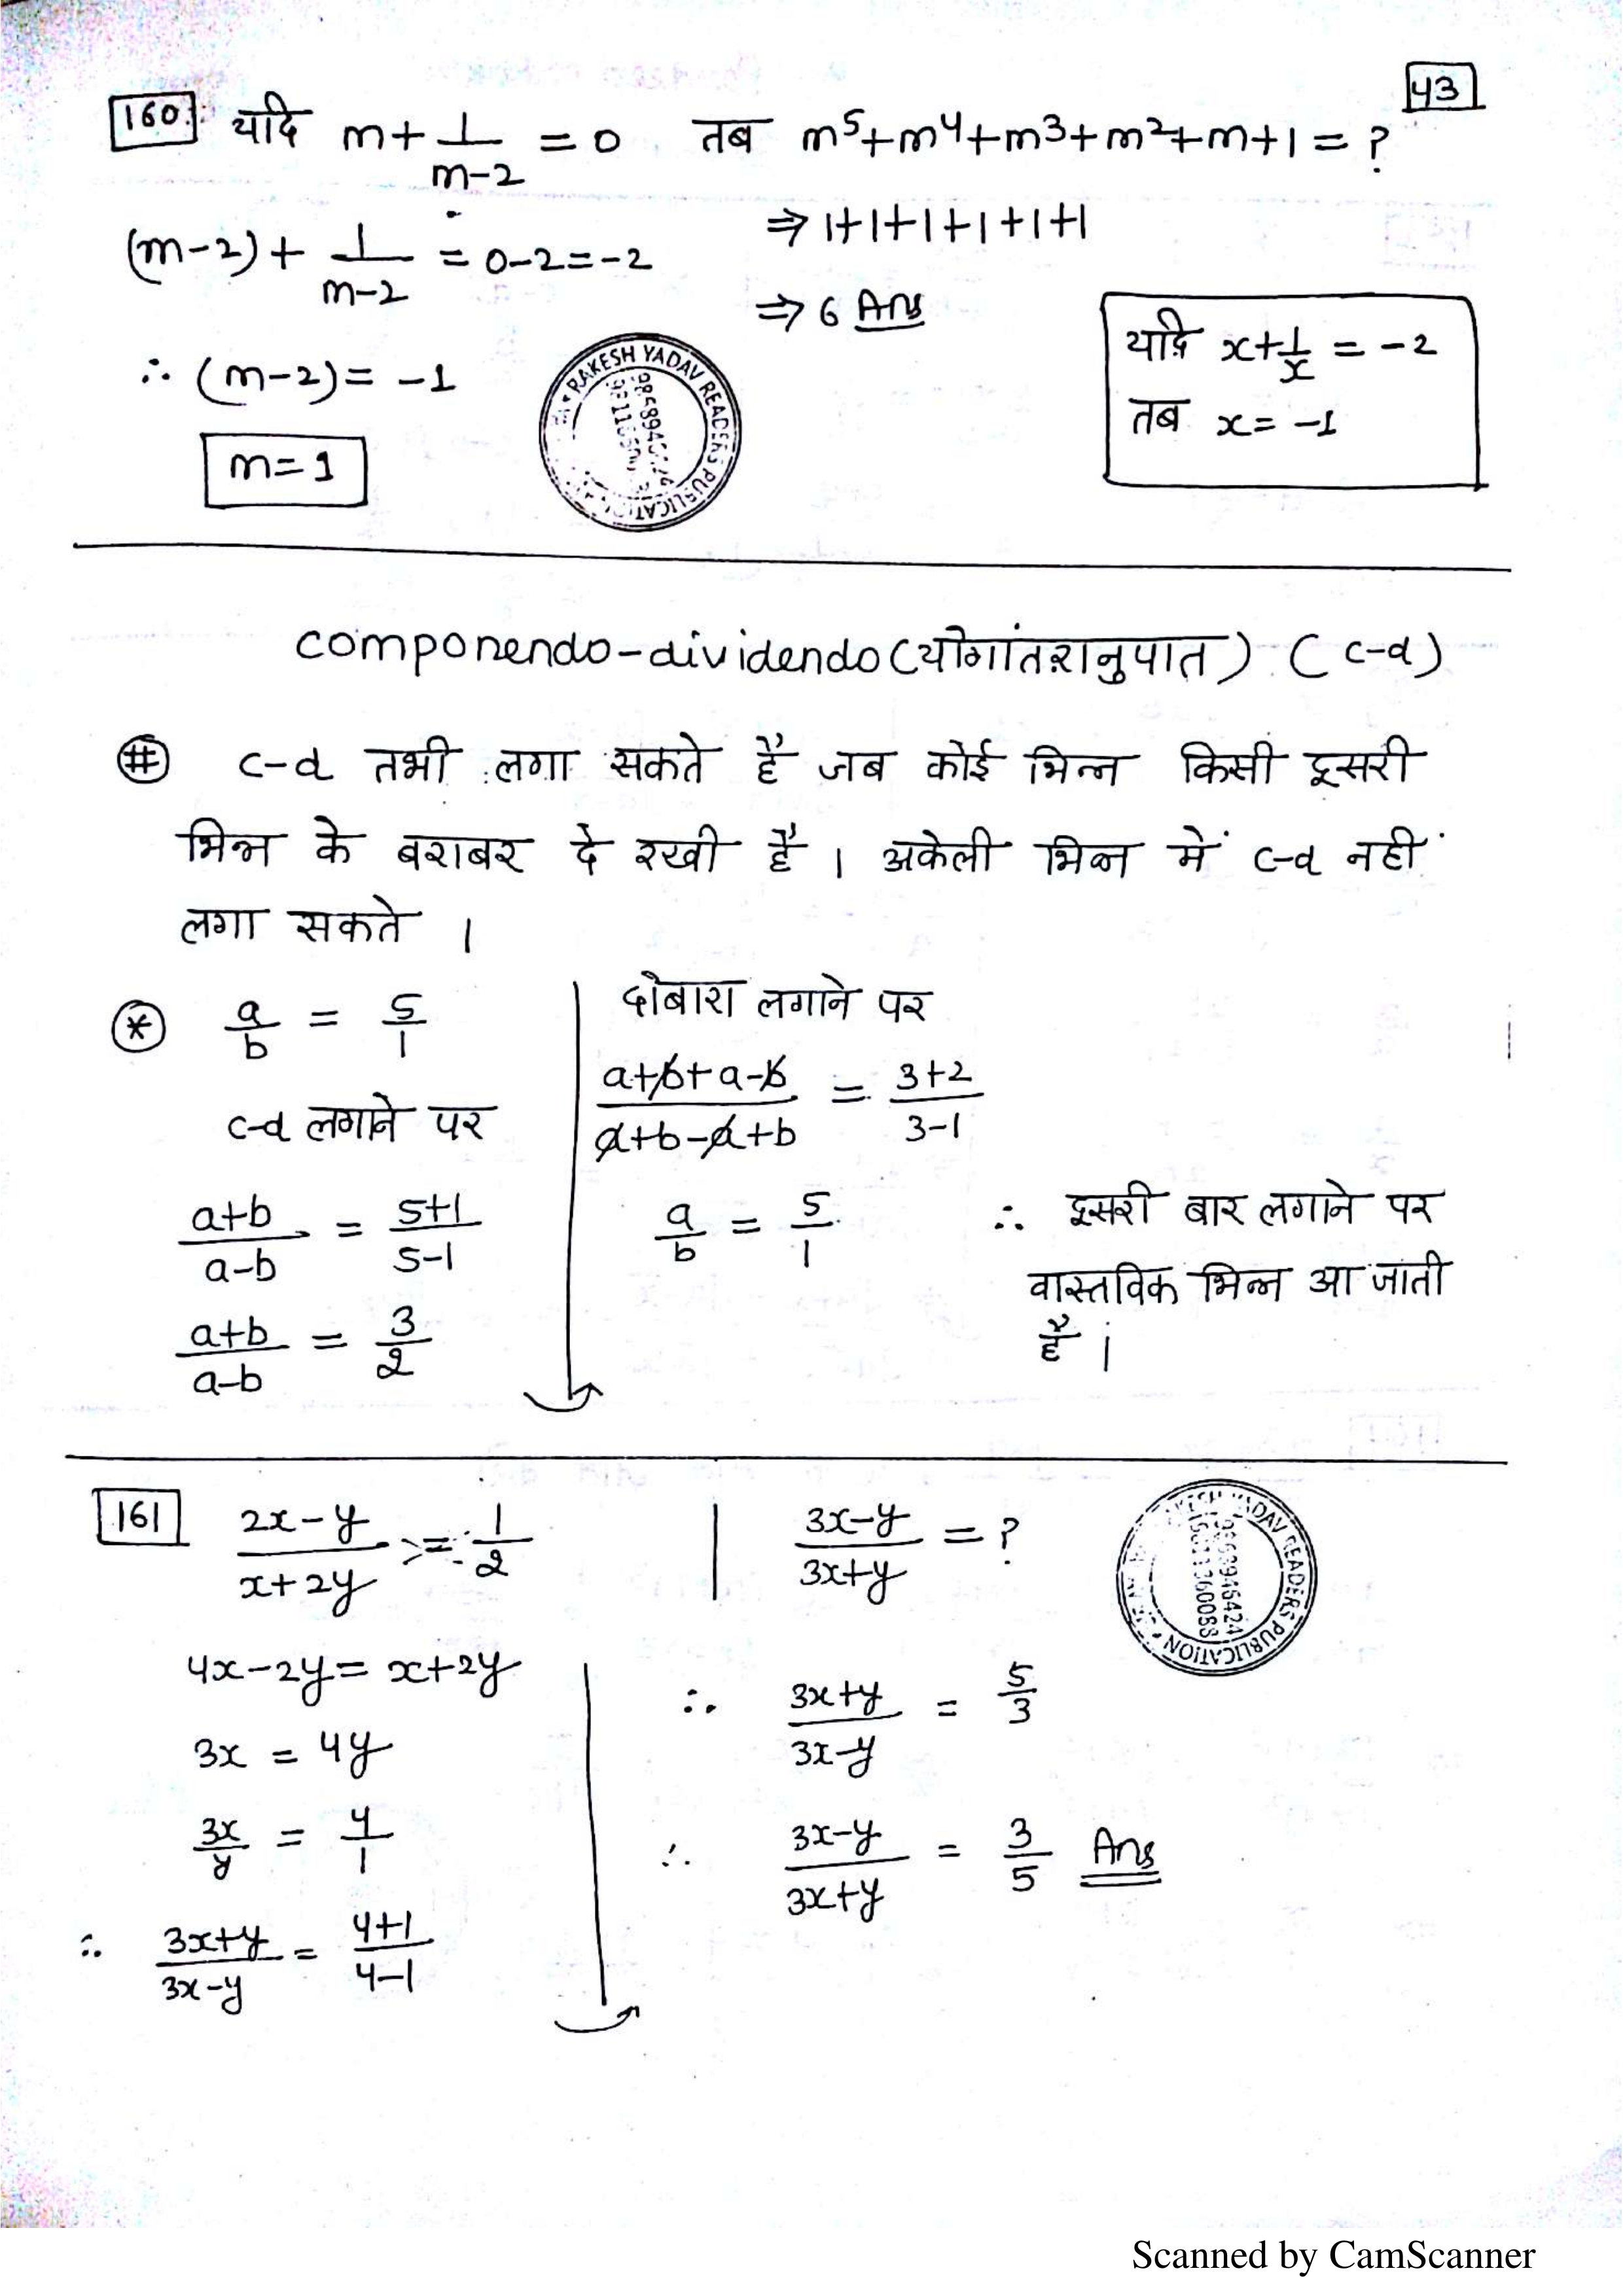 43
160. यदि m + 1/(m-2) = 0 तब m⁵+m⁴+m³+m²+m+1 = ?
(m-2) + 1/(m-2) = 0-2 = -2
⇒ 1+1+1+1+1+1
⇒ 6 Ans
∴ (m-2) = -1
m = 1
यदि x + 1/x = -2
तब x = -1
RAKESH YADAV READERS PUBLICATION
componendo-dividendo (योगांतरानुपात) (c-d)
# c-d तभी लगा सकते है जब कोई भिन्न किसी दूसरी
भिन्न के बराबर दे रखी है । अकेली भिन्न में c-d नहीं
लगा सकते ।
* a/b = 5/1
c-d लगाने पर
(a+b)/(a-b) = (5+1)/(5-1)
(a+b)/(a-b) = 3/2
दोबारा लगाने पर
(a+b+a-b)/(a+b-a+b) = (3+2)/(3-1)
a/b = 5/1
∴ दूसरी बार लगाने पर
वास्तविक भिन्न आ जाती
है ।
161 (2x-y)/(x+2y) = 1/2 | (3x-y)/(3x+y) = ?
4x-2y = x+2y
3x = 4y
3x/y = 4/1
∴ (3x+y)/(3x-y) = (4+1)/(4-1)
∴ (3x+y)/(3x-y) = 5/3
∴ (3x-y)/(3x+y) = 3/5 Ans
READERS PUBLICATION
Scanned by CamScanner